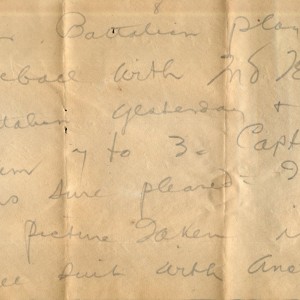 8
Battalion play
seball with 3rd
talion yesterday +
7 to 3. Capt
s sure pleased -
picture taken i
suit with